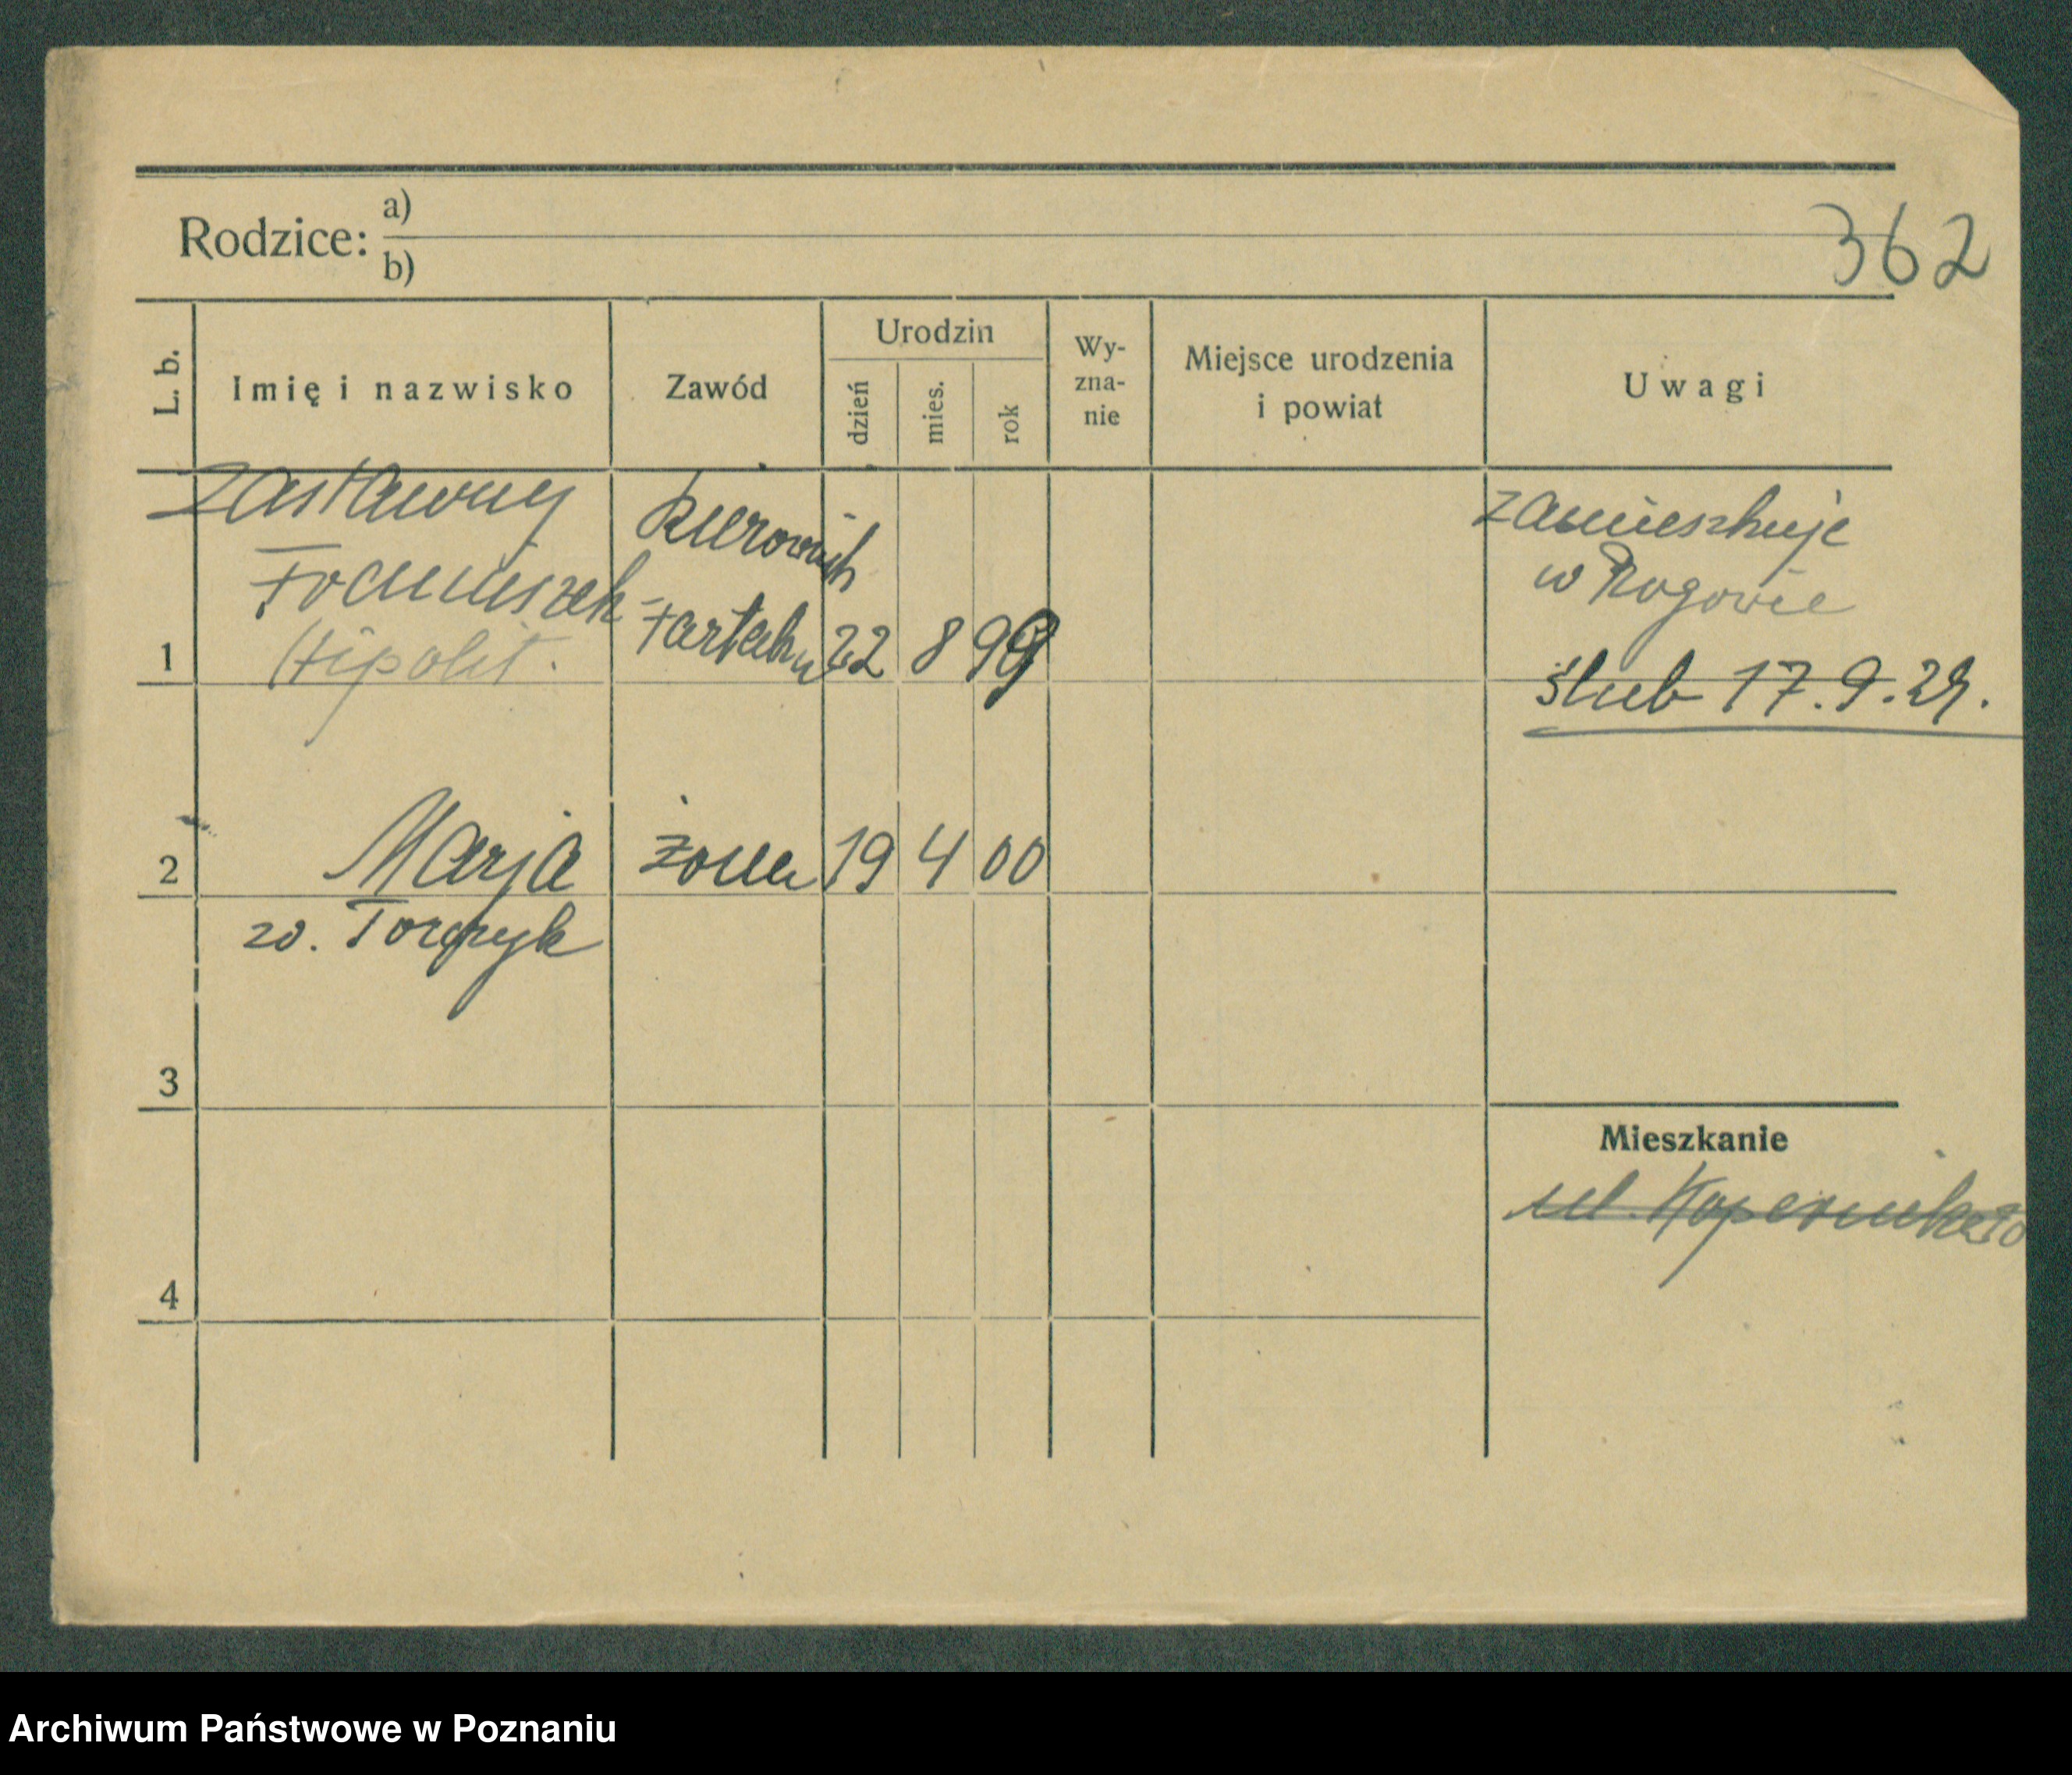 Rodzice: a)
b)
362
L. b.
Imię i nazwisko
Zawód
Urodzin
dzień
mies.
rok
Wy-
zna-
nie
Miejsce urodzenia
i powiat
Uwagi
Zastawny
Franciszek
Hipolit.
kierownik
tartaku
1
22 8 99
zamieszkuje
w Rogowie
ślub 17.9.29.
2
Marja
żona
19 4 00
zd.
3
4
Mieszkanie
ul. Kopernika
Archiwum Państwowe w Poznaniu